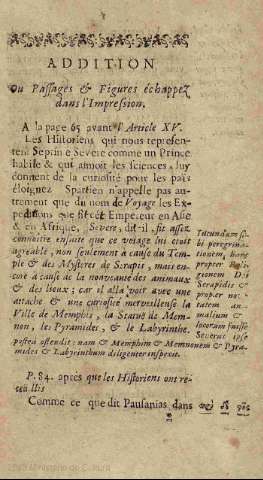 ADDITION
Ou Passages & Figures échappez
dans l'Impression.
A la page 65 avant l'Article XV.
Les Historiens qui nous represen-
tent Septime Severe comme un Prince
habile & qui aimoit les sciences, luy
donnent de la curiosité pour les païs
éloignez. Spartien n'appelle pas au-
trement que du nom de Voyage les Ex-
peditions que fit cet Empereur en Asie
& en Afrique, Severe, dit-il, fit assez
connoitre ensuite que ce voiage lui étoit
agreable, non seulement à cause du Tem-
ple & des Mysteres de Serapis, mais en-
core à cause de la nouveauté des animaux
& des lieux; car il alla voir avec une
attache & une curiosité merveilleuse la
Ville de Memphis, la Statuë de Mem-
non, les Pyramides, & le Labyrinthe.
Jucundam si-
bi peregrina-
tionem, hanc
propter Reli-
gionem Dei
Serapidis &
propter no-
tatem an-
malium &
locorum fuisse
Severus ipse
postea ostendit: nam & Memphim & Memnonem & Pyra-
mides & Labyrinthum diligenter inspexit.
P. 84. après que les Historiens ont re-
Comme ce que dit Pausanias dans
Ministerio de Cultura